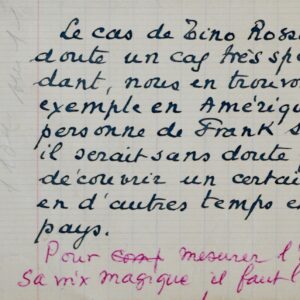 Le cas de Tino Ross
doute un cas très spé
dant, nous en trouvo
exemple en Amériq
personne de Frank S
il serait sans doute
découvrir un certai
en d'autres temps e
pays.
Pour mesurer l'
sa voix magique il faut l